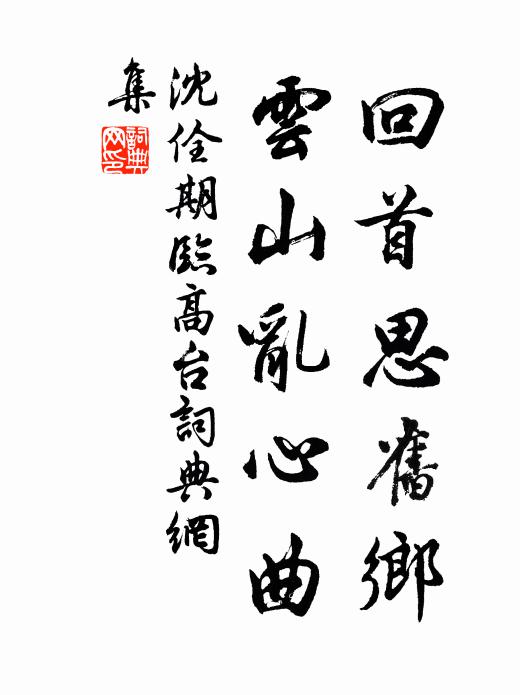 回首思舊鄉
雲山亂心曲
沈佺期臨高台詞典網
集
詞典
网印